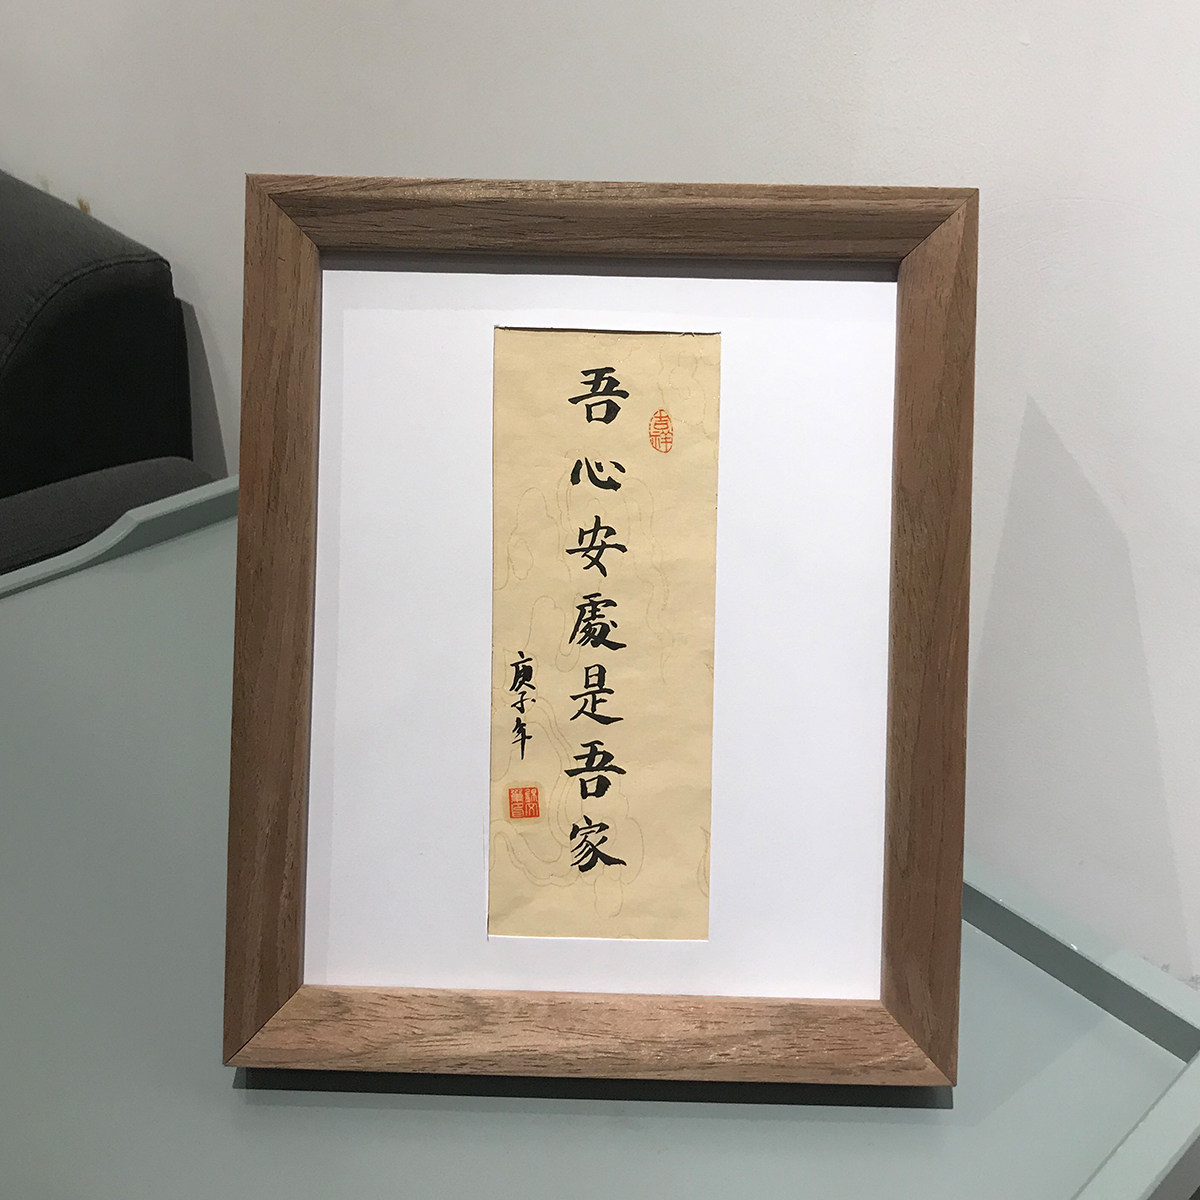 吾心安處是吾家
吉祥
庚子年